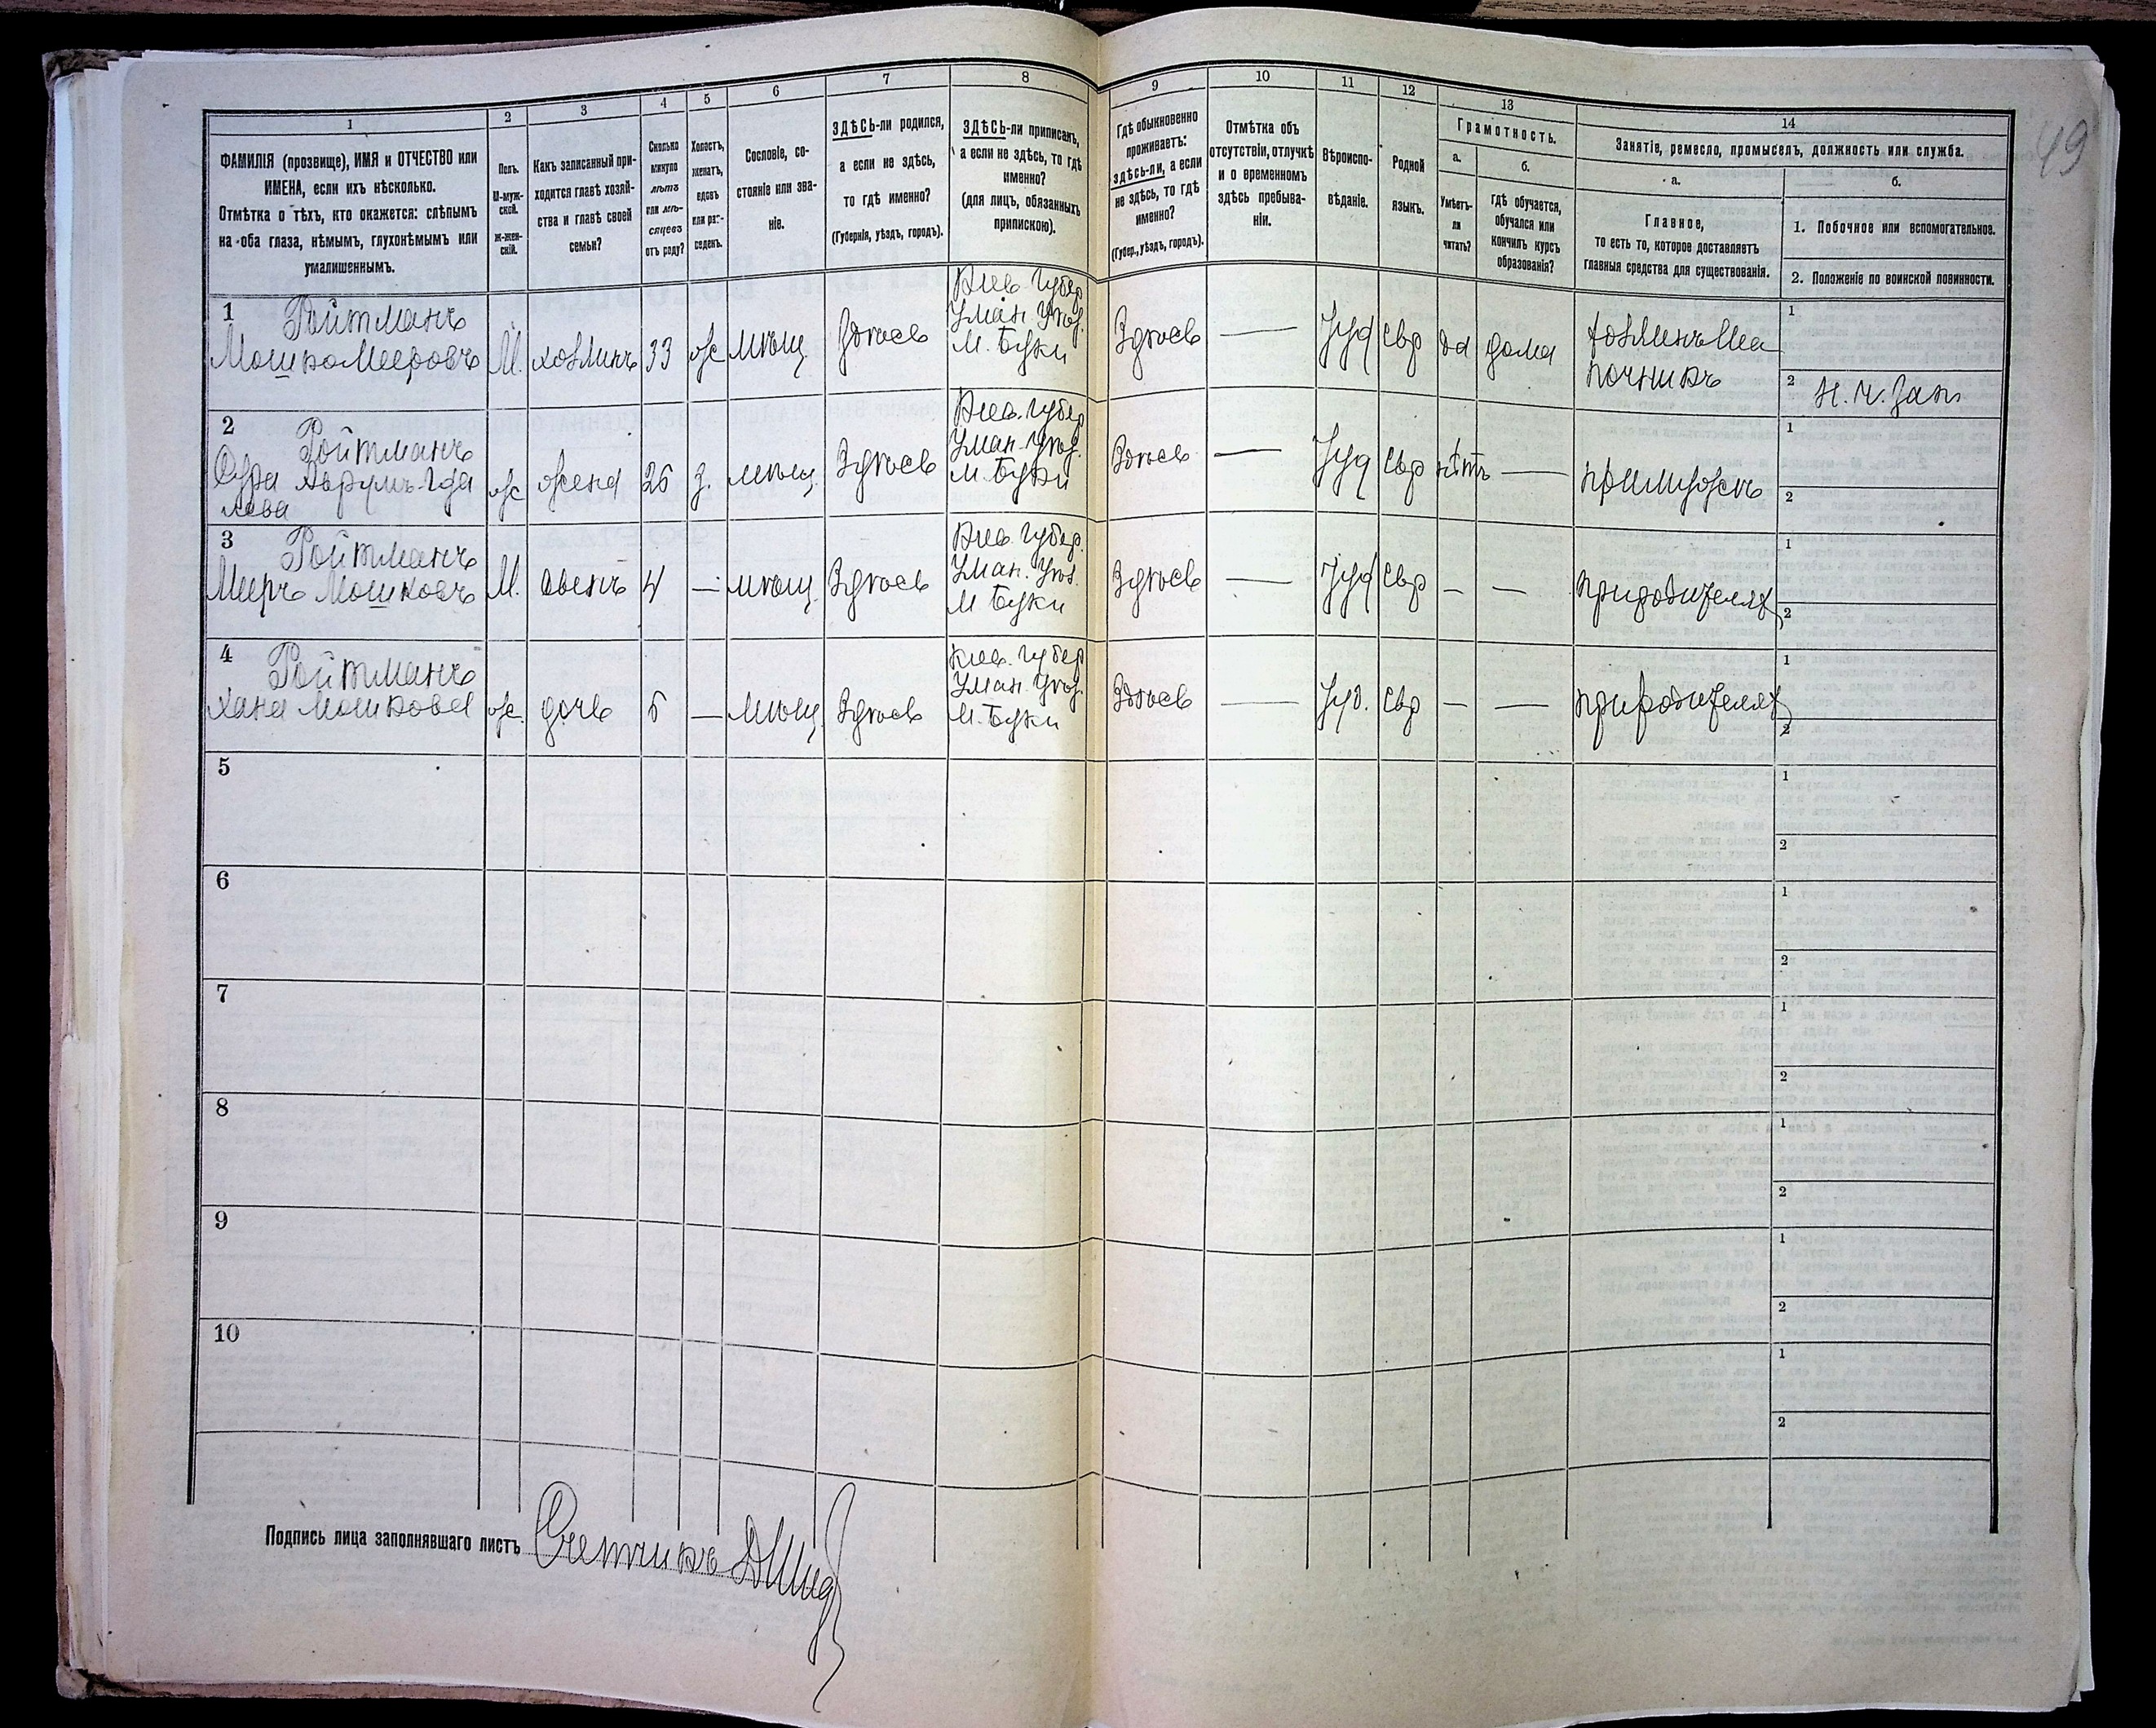 49
1
ФАМИЛІЯ (прозвище), ИМЯ и ОТЧЕСТВО или
ИМЕНА, если ихъ нѣсколько.
Отмѣтка о тѣхъ, кто окажется: слѣпымъ
на оба глаза, нѣмымъ, глухонѣмымъ или
умалишеннымъ.
2
Полъ.
М-муж-
ской.
ж-жен-
скій.
3
Какъ записанный при-
ходится главѣ хозяй-
ства и главѣ своей
семьи?
4
Сколько
минуло
лѣтъ
или мѣ-
сяцевъ
отъ роду?
5
Холостъ,
женатъ,
вдовъ
или раз-
веденъ.
6
Сословіе, со-
стояніе или зва-
ніе.
7
ЗДѢСЬ-ли родился,
а если не здѣсь,
то гдѣ именно?
(Губернія, уѣздъ, городъ).
8
ЗДѢСЬ-ли приписанъ,
а если не здѣсь, то гдѣ
именно?
(для лицъ, обязанныхъ
припискою).
9
Гдѣ обыкновенно
проживаетъ:
здѣсь-ли, а если
не здѣсь, то гдѣ
именно?
(Губер., уѣздъ, городъ).
10
Отмѣтка объ
отсутствіи, отлучкѣ
и о временномъ
здѣсь пребыва-
ніи.
11
Вѣроиспо-
вѣданіе.
12
Родной
языкъ.
13
Грамотность.
а.
Умѣетъ-
ли
читать?
б.
гдѣ обучается,
обучался или
кончилъ курсъ
образованія?
14
Занятіе, ремесло, промыселъ, должность или служба.
а.
Главное,
то есть то, которое доставляетъ
главныя средства для существованія.
б.
1. Побочное или вспомогательное.
2. Положеніе по воинской повинности.
1
Ройтманъ
Мошко Мееровъ
М.
хозяинъ
33
ж
мѣщ
Здѣсь
Кіев. губер
Уман. уѣз.
М. Буки
Здѣсь
—
Іуд
Евр
да
дома
хозяинъ Ша
почникъ
1
2
н. ч. Зап
2
Ройтманъ
Сура Аврумъ-Гда
лева
ж
жена
26
З.
мѣщ.
Здѣсь
Кіев. губер
Уман. уѣз.
М. Буки
Здѣсь
—
Іуд
Евр
нѣтъ
—
при мужѣ
1
2
3
Ройтманъ
Мееръ Мошковъ
М.
сынъ
4
—
мѣщ.
Здѣсь
Кіев. губер.
Уман. уѣз.
М Буки
Здѣсь
—
Іуд
Евр
—
—
при родителях
1
2
4
Ройтманъ
Хана Мошкова
ж.
дочь
5
—
мѣщ
Здѣсь
Кіев. губер
Уман. уѣз.
М. Буки
Здѣсь
—
Іуд.
Евр
—
—
при родителях
1
2
5
1
2
6
1
2
7
1
2
8
1
2
9
1
2
10
1
2
Подпись лица заполнявшаго листъ Счетчикъ